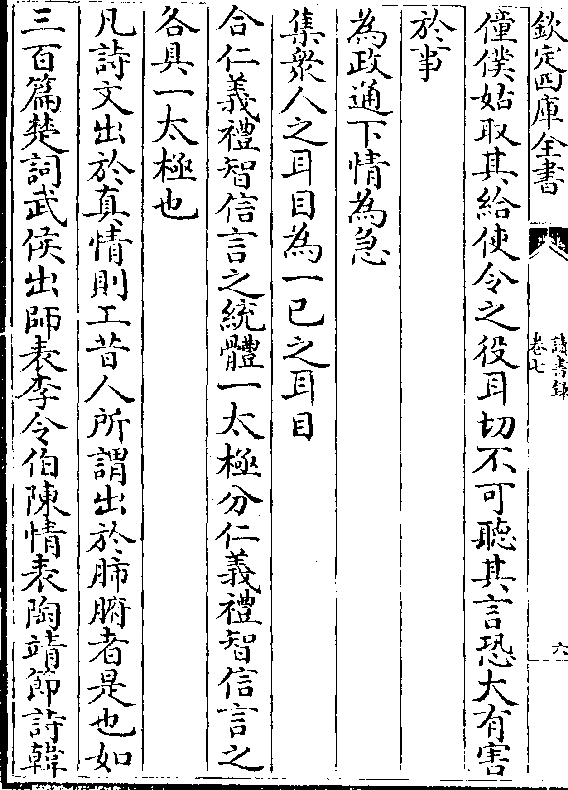 欽定四庫全書
讀書録
卷七
六
僮僕姑取其給使令之役耳切不可聽其言恐大有害
於事
為政通下情為急
集衆人之耳目為一已之耳目
合仁義禮智信言之統體一太極分仁義禮智信言之
各具一太極也
凡詩文出於真情則工昔人所謂出於肺腑者是也如
三百篇楚詞武侯出師表李令伯陳情表陶靖節詩韓